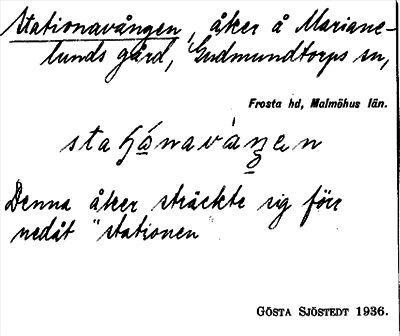 Stationavången, åker å Mariane-
lunds gård, Gudmundtorps sn,
Frosta hd, Malmöhus län.
Denna åker sträckte sig förr
nedåt "stationen"
GÖSTA SJÖSTEDT 1936.